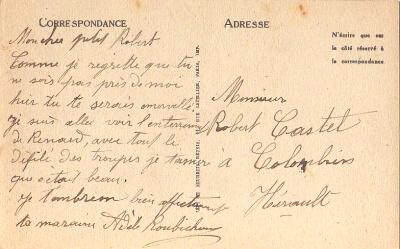 CORRESPONDANCE
Mon cher petit Robert
Comme je regrette que tu
ne sois pas près de moi
hier tu te serais émerveillé
je suis allée voir l'enterrement
de Renard, avec tout le
défilé des troupes je t'assure
que c'était beau.
je t'embrasse bien affectueusement
ta marraine Adèle
ADRESSE
N'écrire que sur
le côté réservé à
la correspondance
Monsieur
Robert Castel
à Colombiers
Hérault